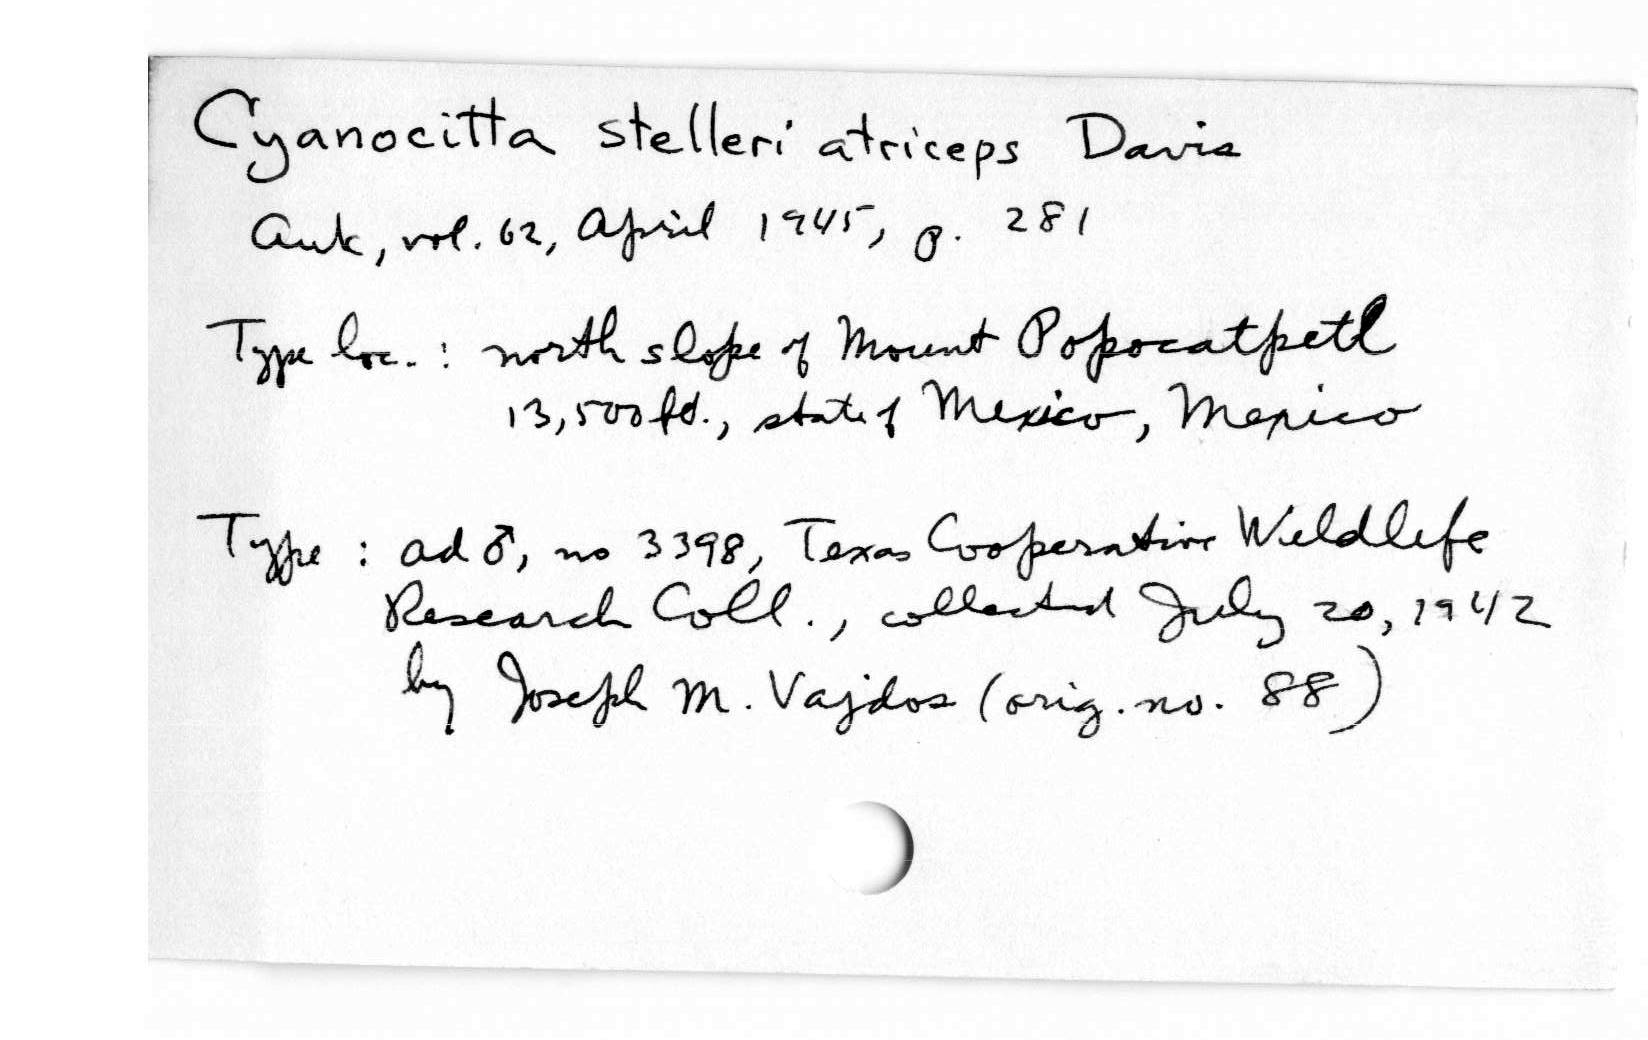 Cyanocitta stelleri atriceps Davis
Auk, vol. 62, April 1945, p. 281
Type loc. : north slope of Mount Popocatpetl
13,500 ft., state of Mexico, Mexico
Type : ad ♂, no 3398, Texas Cooperative Wildlife
Research Coll., collected July 20, 1942
by Joseph M. Vajdos (orig. no. 88)